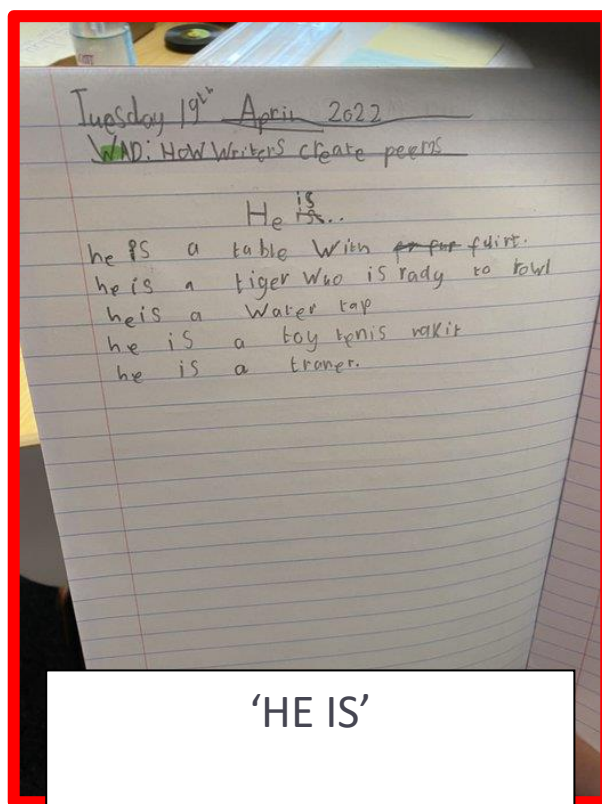 Tuesday 19th April 2022
WAD: How Writers create peems
is
He is..
he is a table With
he is a tiger Who is rady to rowl
he is a Water tap
he is a toy tenis rakit
he is a traner.
‘HE IS’